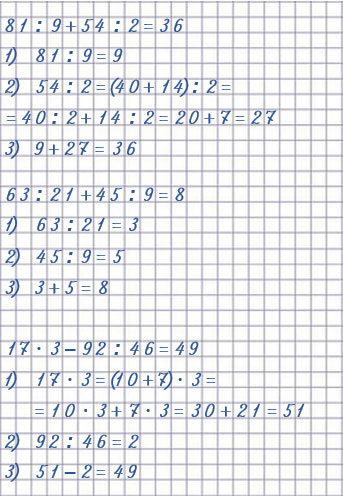 81 : 9 + 54 : 2 = 36
1) 81 : 9 = 9
2) 54 : 2 = (40 + 14) : 2 =
= 40 : 2 + 14 : 2 = 20 + 7 = 27
3) 9 + 27 = 36
63 : 21 + 45 : 9 = 8
1) 63 : 21 = 3
2) 45 : 9 = 5
3) 3 + 5 = 8
17 · 3 – 92 : 46 = 49
1) 17 · 3 = (10 + 7) · 3 =
= 10 · 3 + 7 · 3 = 30 + 21 = 51
2) 92 : 46 = 2
3) 51 – 2 = 49